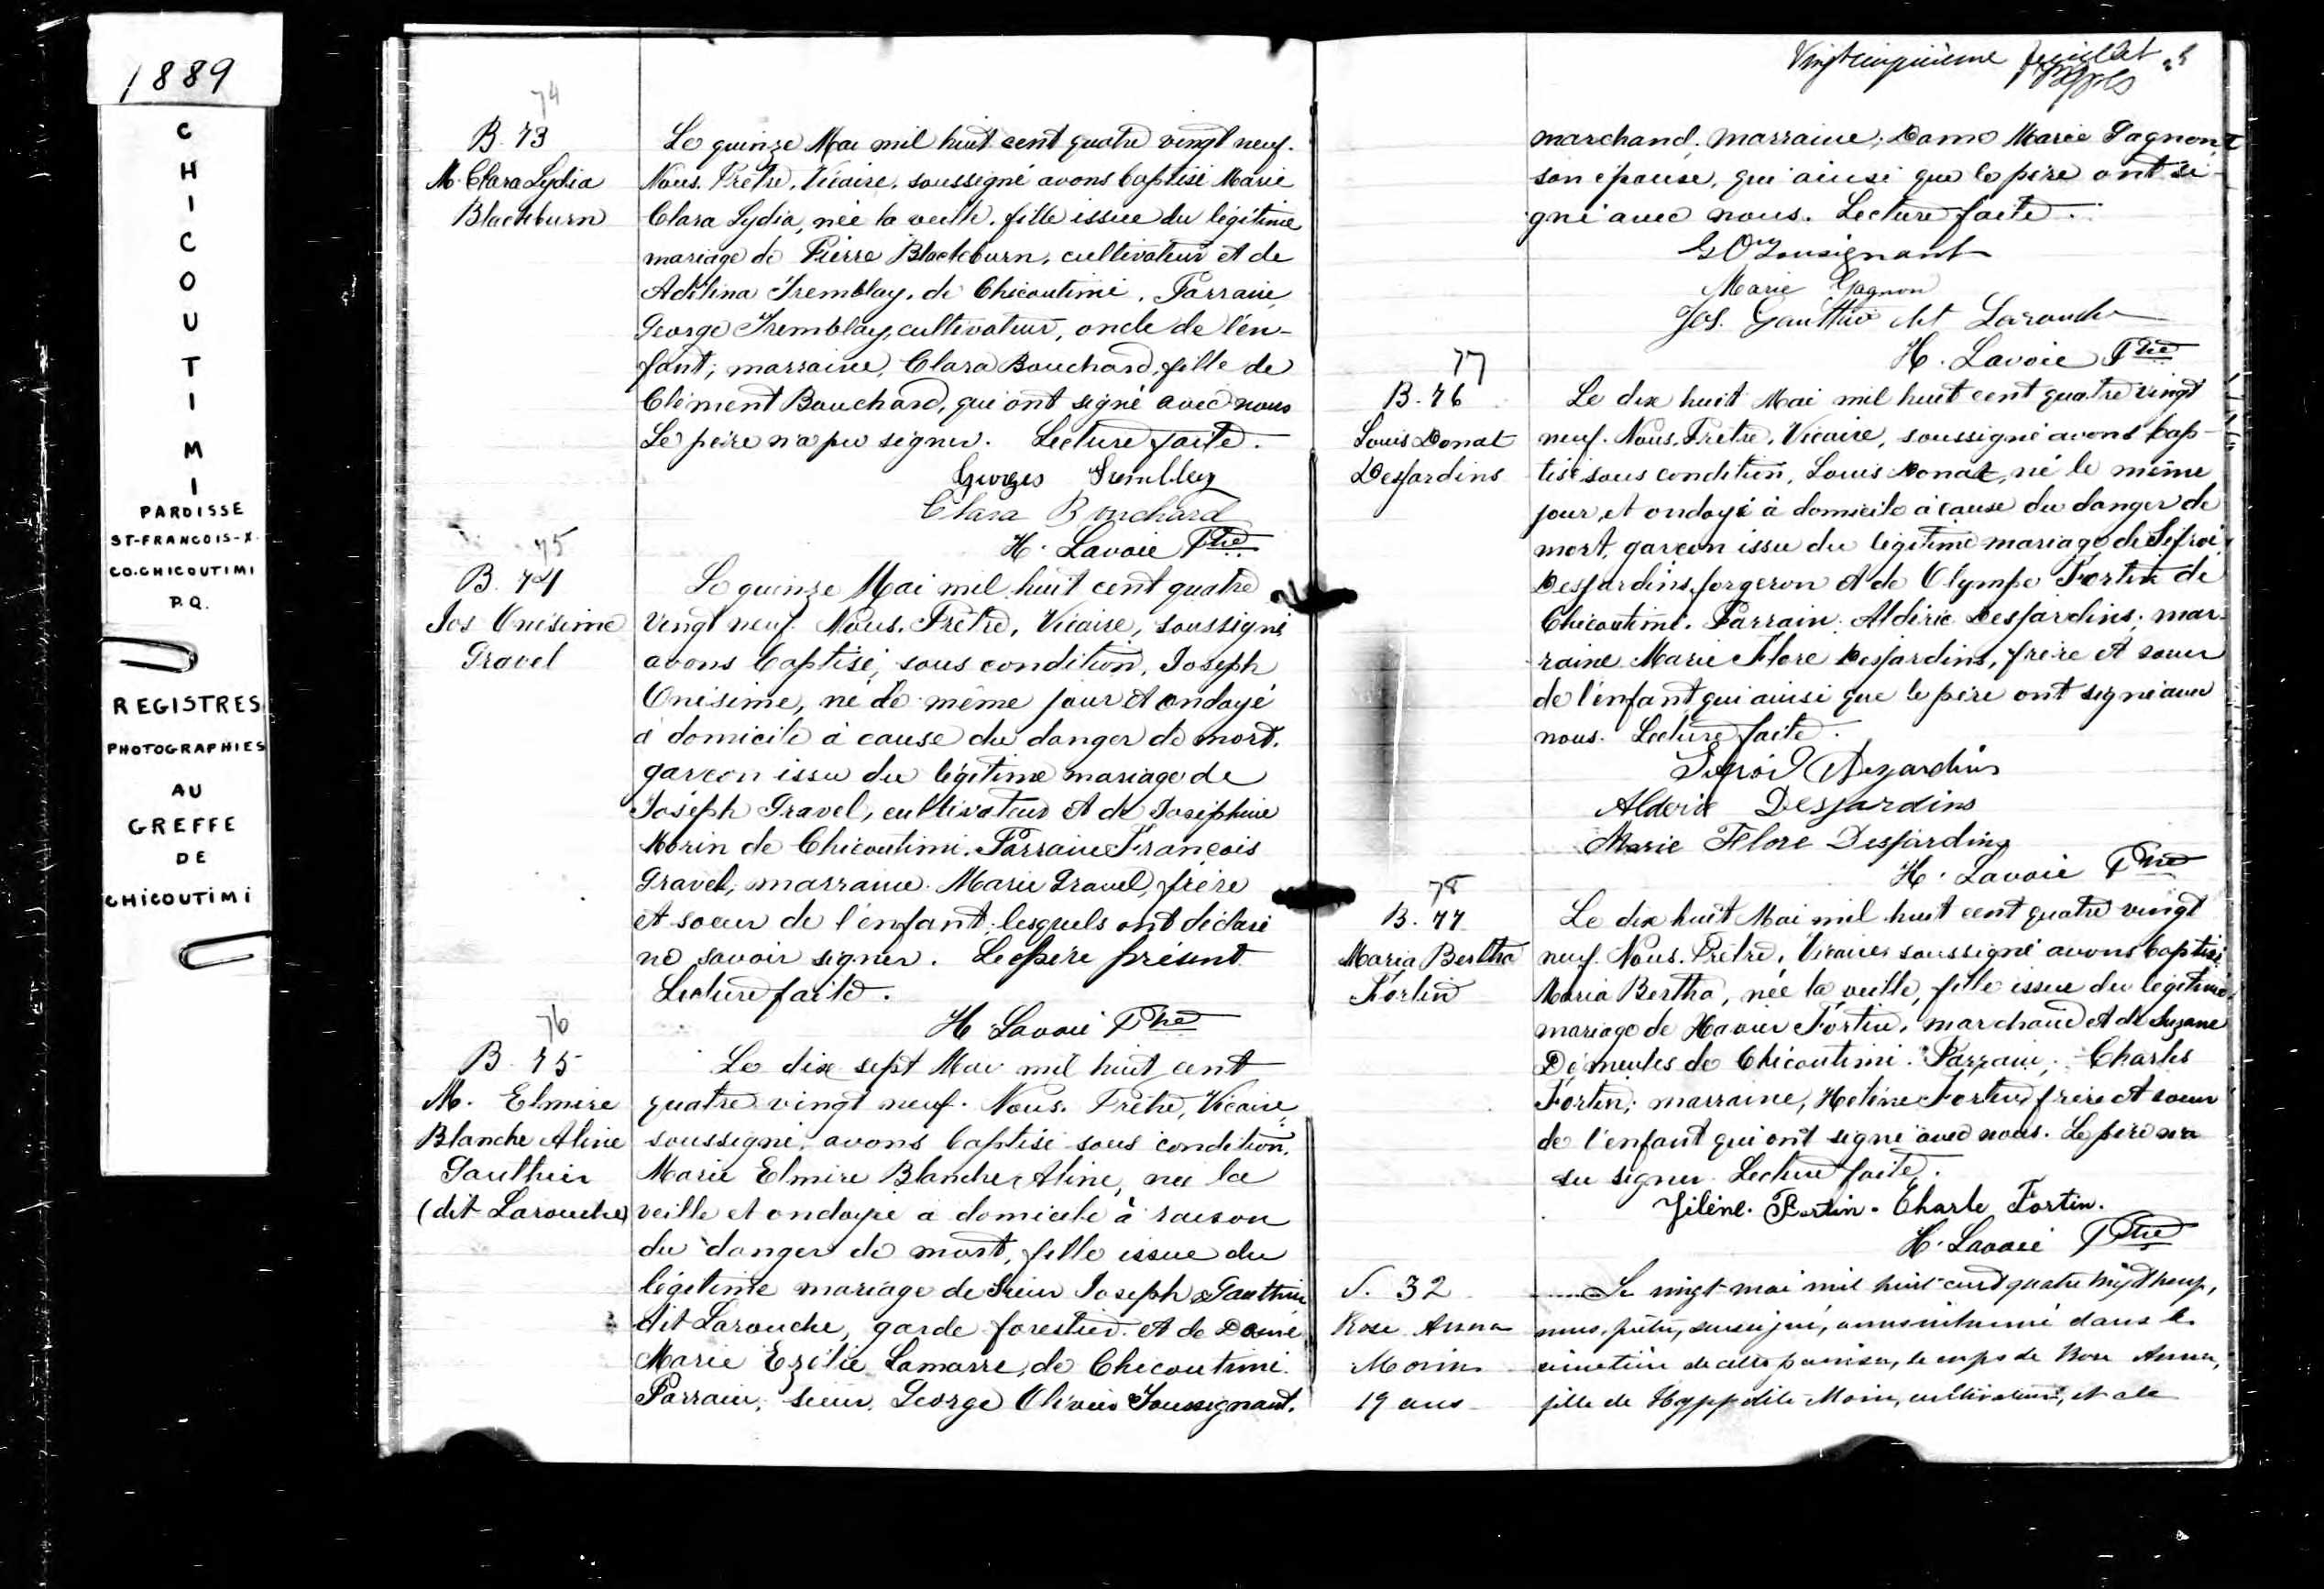 1889
CHICOUTIMI
PAROISSE
ST-FRANCOIS-X.
CO. CHICOUTIMI
P.Q.
REGISTRES
PHOTOGRAPHIES
AU
GREFFE
DE
CHICOUTIMI
74
B. 73
M. Clara Lydia
Blackburn
Le quinze Mai mil huit cent quatre vingt neuf.
Nous, Prêtre, Vicaire, soussigné avons baptisé Marie
Clara Lydia, née la veille, fille issue du légitime
mariage de Pierre Blackburn, cultivateur et de
Adelina Tremblay, de Chicoutimi. Parrain,
George Tremblay, cultivateur, oncle de l'en-
fant; marraine, Clara Bouchard, fille de
Clément Bouchard, qui ont signé avec nous
Le père n'a pu signer. Lecture faite.
Georges Tremblay
Clara Bouchard
H. Lavoie Ptre
75
B. 74
Jos Onésime
Gravel
Le quinze Mai mil huit cent quatre
vingt neuf. Nous, Prêtre, Vicaire, soussigné
avons baptisé, sous condition, Joseph
Onésime, né le même jour et ondoyé
à domicile à cause du danger de mort,
garçon issu du légitime mariage de
Joseph Gravel, cultivateur et de Joséphine
Morin de Chicoutimi. Parrain François
Gravel, marraine Marie Gravel, frère
et soeur de l'enfant, lesquels ont déclaré
ne savoir signer. Le père présent
Lecture faite.
H. Lavoie Ptre
76
B. 75
M. Elmire
Blanche Aline
Gauthier
(dit Larouche)
Le dix sept Mai mil huit cent
quatre vingt neuf. Nous, Prêtre, Vicaire,
soussigné, avons baptisé sous condition,
Marie Elmire Blanche Aline, née la
veille et ondoyée à domicile à raison
du danger de mort, fille issue du
légitime mariage de Sieur Joseph Gauthier
dit Larouche, garde forestier et de Dame
Marie Ezélie Lamarre, de Chicoutimi.
Parrain, sieur George Olivier Tousignant,
Vingtcinquième feuillet
marchand; marraine, Dame Marie Gagnon,
son épouse, qui ainsi que le père ont si-
gné avec nous. Lecture faite.
G O Tousignant
Marie Gagnon
Jos. Gauthier dit Larouche
H. Lavoie Ptre
77
B. 76
Louis Donat
Desjardins
Le dix huit Mai mil huit cent quatre vingt
neuf. Nous, Prêtre, Vicaire, soussigné avons bap-
tisé sous condition, Louis Donat, né le même
jour, et ondoyé à domicile à cause du danger de
mort, garçon issu du légitime mariage de Sifroi
Desjardins forgeron et de Olympe Fortin de
Chicoutimi. Parrain: Aldéric Desjardins; mar-
raine Marie Flore Desjardins, frère et soeur
de l'enfant qui ainsi que le père ont signé avec
nous. Lecture faite.
Sifroid Dezardins
Alderic Desjardins
Marie Flore Desjardins
H. Lavoie Ptre
78
B. 77
Maria Bertha
Fortin
Le dix huit Mai mil huit cent quatre vingt
neuf. Nous, Prêtre, Vicaire, soussigné avons baptisé
Maria Bertha, née la veille, fille issue du légitime
mariage de Xavier Fortin, marchand et de Suzane
Démeules de Chicoutimi. Parrain, Charles
Fortin; marraine, Helène Fortin, frère et soeur
de l'enfant qui ont signé avec nous. Le père n'a
su signer. Lecture faite.
Hélène Fortin. Charle Fortin.
H. Lavoie Ptre
S. 32
Rose Anna
Morin
19 ans
Le vingt mai mil huit cent quatre vingt neuf,
nous, prêtre, soussigné, avons inhumé dans le
cimetière de cette paroisse, le corps de Rose Anna,
fille de Hyppolite Morin, cultivateur, et de